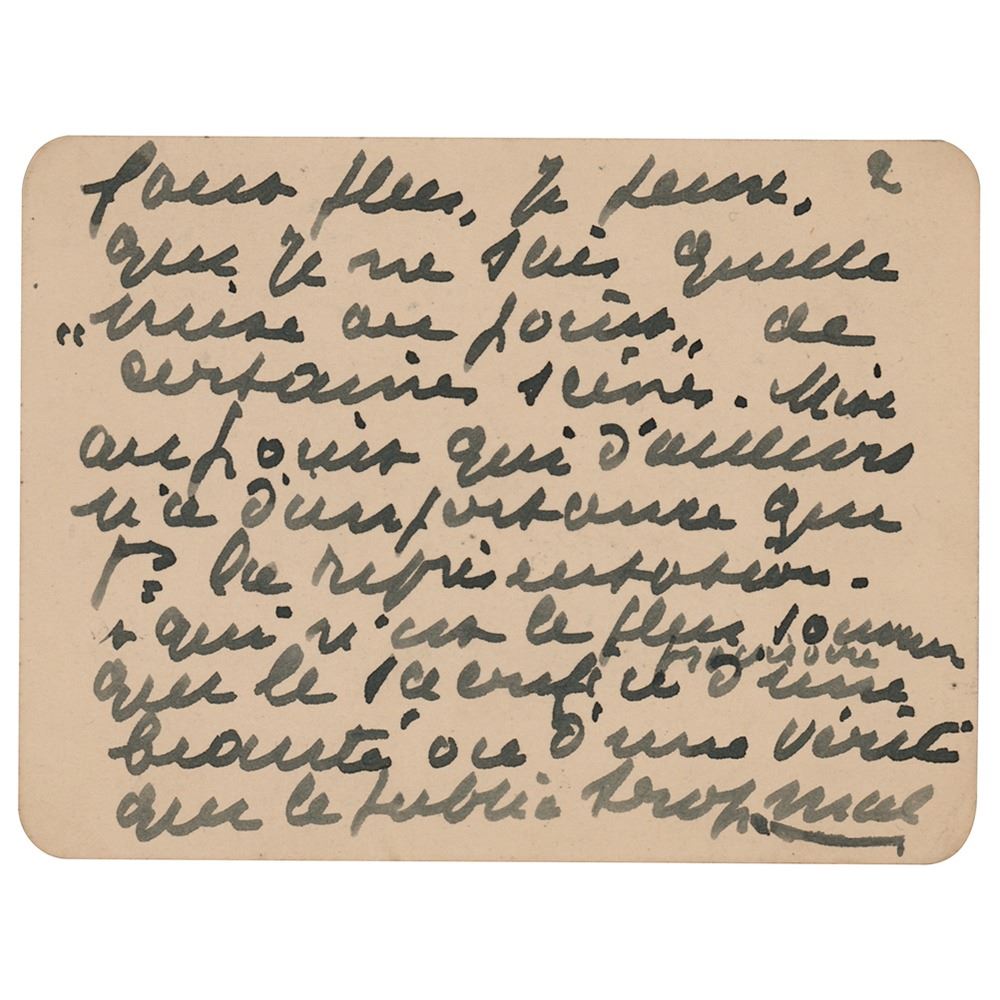 sans plus, Je pense, 2
que Je ne sais quelle
„mise au point„ de
certaines scènes. Mise
au point qui d'ailleurs
n'a d'importance que
pr la représentation.
+ qui n'est le plus souvent
provisoire
que le sacrifice d'une
beauté ou d'une vérité
que le public trop mal